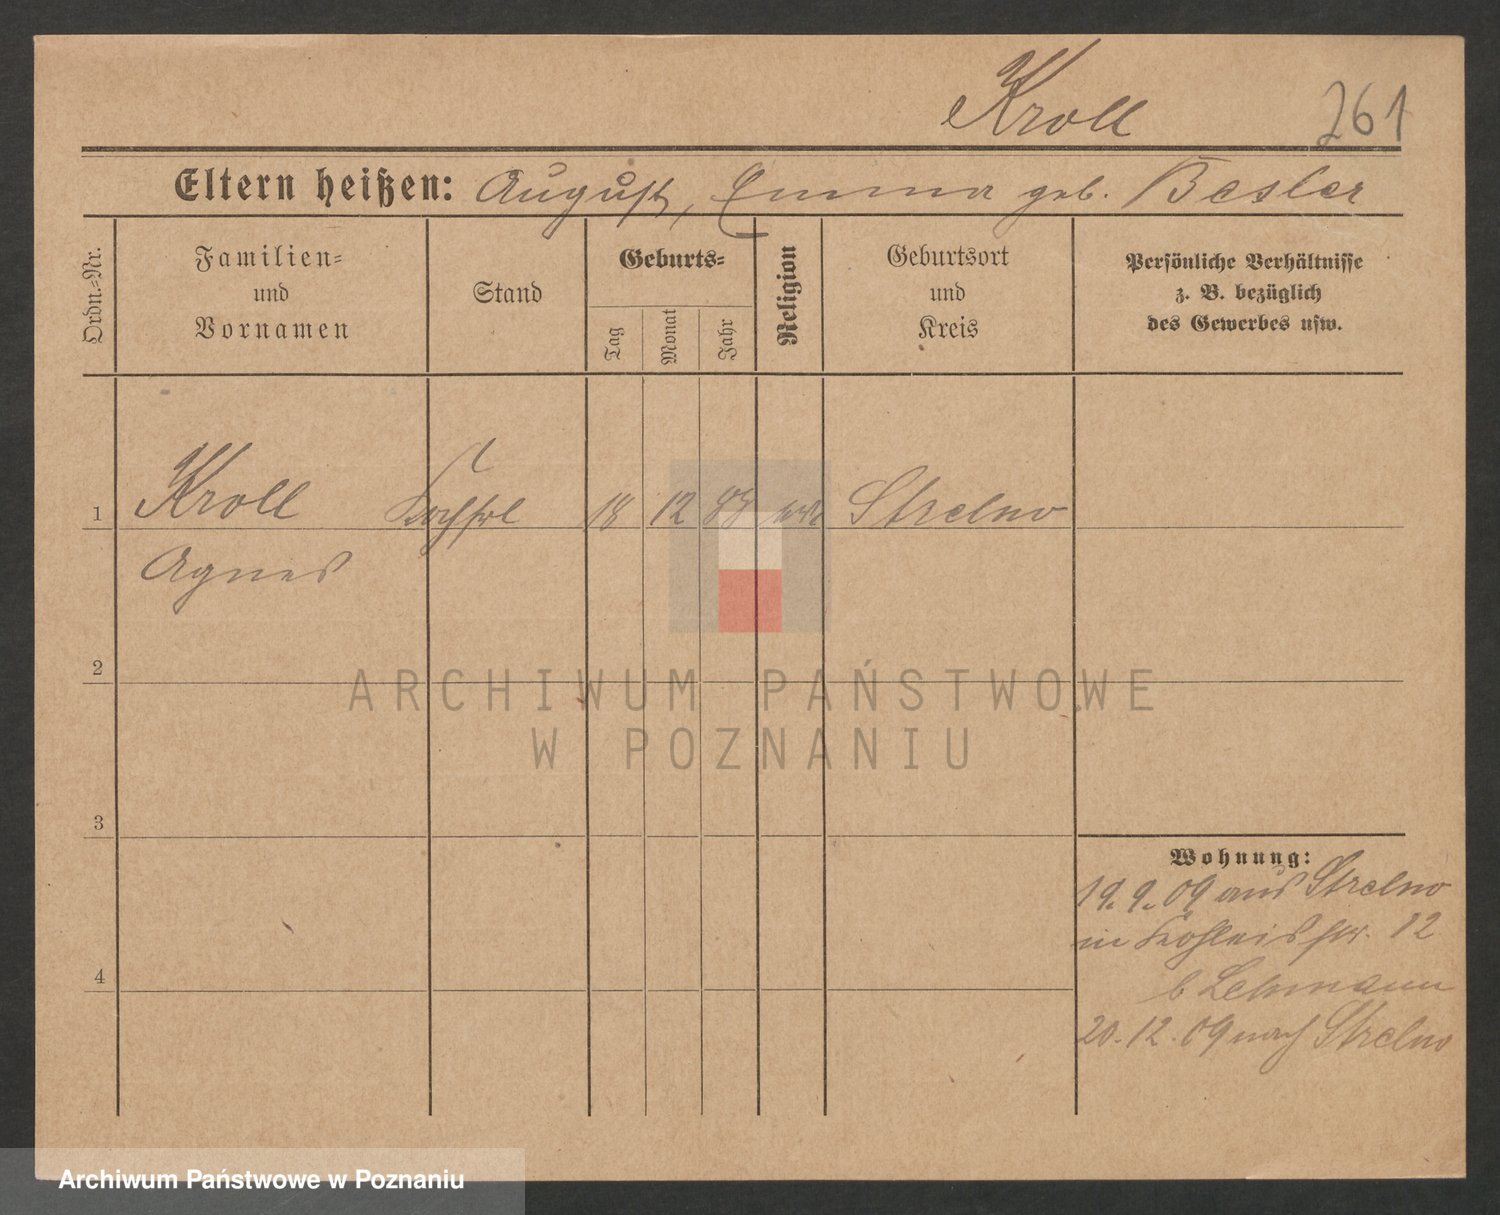 Kroll 261
Eltern heißen: August, Emma geb. Besler
Ordn.-Nr.
Familien-
und
Vornamen
Stand
Geburts-
Tag
Monat
Jahr
Religion
Geburtsort
und
Kreis
Persönliche Verhältnisse
z. B. bezüglich
des Gewerbes usw.
1 Kroll 18 12 Strelno
Agnes
2
3
4
Wohnung:
19.9.09 aus Strelno
in 12
b Lehmann
20.12.09 nach Strelno
ARCHIWUM PAŃSTWOWE
W POZNANIU
Archiwum Państwowe w Poznaniu